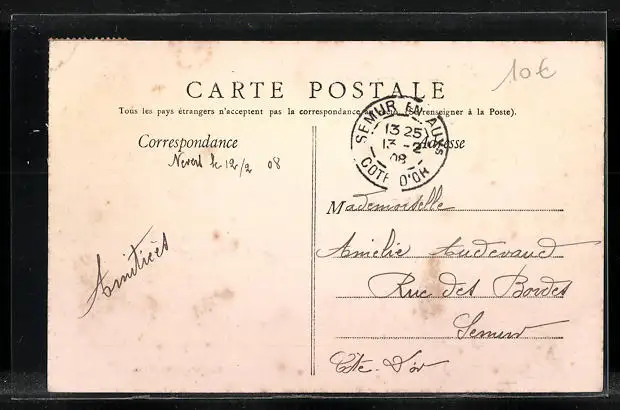 10€
CARTE POSTALE
Tous les pays étrangers n'acceptent pas la correspondance au (Se renseigner à la Poste).
SEMUR EN AUXS
13 25
13 -2
08
COTE D'OR
Correspondance
le 12/2 08
Amitiées
Adresse
Mademoiselle
Amélie Audevaud
Rue des Bordes
Semur
Côte. D'or